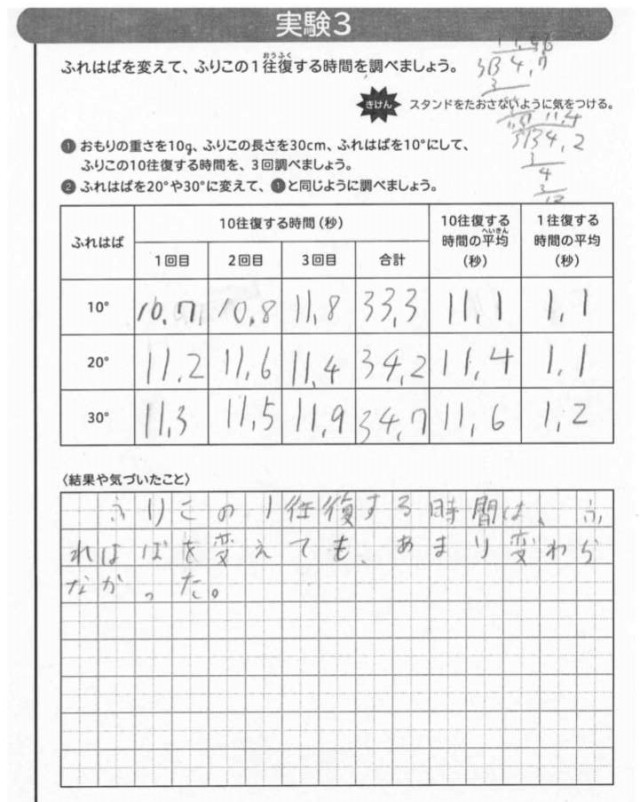 実験3
ふれはばを変えて、ふりこの1往復する時間を調べましょう。
おうふく
きけん スタンドをたおさないように気をつける。
❶ おもりの重さを10g、ふりこの長さを30cm、ふれはばを10°にして、
ふりこの10往復する時間を、3回調べましょう。
❷ ふれはばを20°や30°に変えて、❶と同じように調べましょう。
3)34,7
3
11,4
3)34,2
3
4
3
12
ふれはば 10往復する時間(秒) 10往復する時間の平均(秒) 1往復する時間の平均(秒)
へいきん
1回目 2回目 3回目 合計
10° 10,7 10,8 11,8 33,3 11,1 1,1
20° 11,2 11,6 11,4 34,2 11,4 1,1
30° 11,3 11,5 11,9 34,7 11,6 1,2
〈結果や気づいたこと〉
ふりこの1往復する時間は、ふ
れはばを変えても、あまり変わら
なかった。